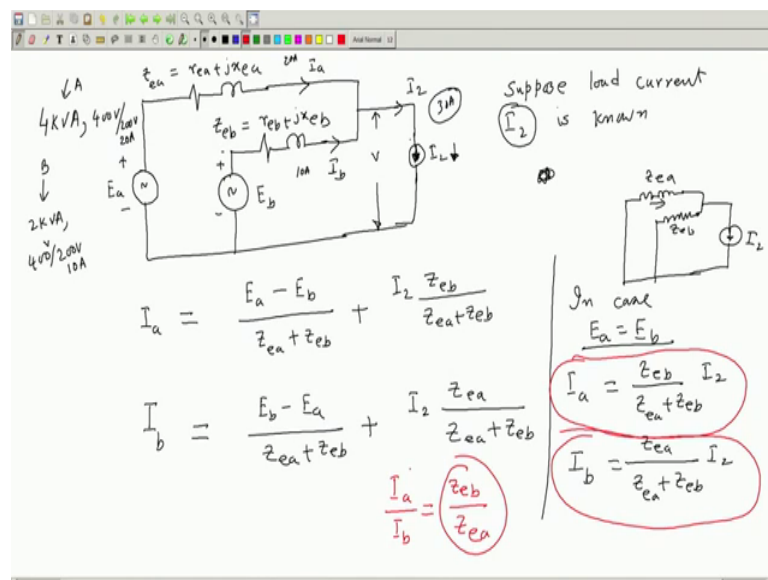 Arial Normal 12
A
4KVA, 400V/200V
20A
B
2KVA,
400V/200V
10A
Zea = rea+jxea
20A
Ia
Zeb = reb+jxeb
10A
Ib
+
-
Ea
+
-
Eb
V
I2
30A
I2
Suppose load current
I2 is known
Zea
Zeb
I2
Ia = (Ea - Eb)/(Zea + Zeb) + I2 Zeb/(Zea+Zeb)
Ib = (Eb - Ea)/(Zea + Zeb) + I2 Zea/(Zea + Zeb)
In case
Ea = Eb
Ia = Zeb/(Zea+Zeb) I2
Ib = Zea/(Zea+Zeb) I2
Ia/Ib = Zeb/Zea